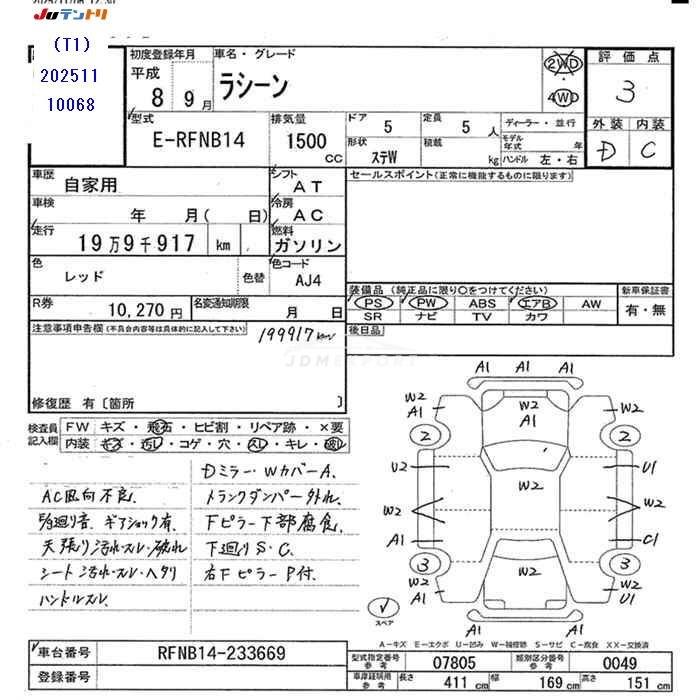 JUテントリ
(T1)
202511
10068
初度登録年月
車名・グレード
平成
8 9月
ラシーン
2WD
4WD
評価点
3
外装 内装
D C
型式
E-RFNB14
排気量
1500
cc
ドア
5
定員
5 人
ディーラー・並行
形状
ステW
積載
kg
モデル年式
年
ハンドル 左・右
車歴
自家用
シフト
AT
セールスポイント(正常に機能するものに限ります)
車検
年 月( 日)
冷房
AC
走行
19万9千917 km
燃料
ガソリン
色
レッド
色替
色コード
AJ4
装備品(純正品に限り○をつけてください)
新車保証書
PS PW ABS エアB AW
SR ナビ TV カワ
有・無
R券
10,270円
名変通知期限
月 日
後日品
注意事項申告欄(不具合内容等は具体的に記入して下さい)
199917km
JDMEXPORT
修復歴 有〔箇所 〕
検査員記入欄
FW キズ・飛石・ヒビ割・リペア跡・×要
内装 キズ・汚レ・コゲ・穴・スレ・キレ・破レ
Dミラー・WカバーA.
AC風向不良.
トランクダンパー外れ.
駆廻り音.ギアショック有.
Fピラー下部腐食.
天張り汚れ・スレ・破れ
下廻りS・C.
シート汚れ・スレ・ヘタリ
右Fピラー P付.
ハンドルスレ
A1 A1 A1
W2 A1
W2 A1
W2
2 2
U2 U1
W2
W2 W2
A1 C1
3 3
W2 A1
W2
W2 U1
スペア
A1 A1
A-キズ E-エクボ U-凹み W-補修跡 S-サビ C-腐食 XX-交換済
車台番号
RFNB14-233669
登録番号
型式指定番号 参考
07805
類別区分番号 参考
0049
車庫証明用 参考
長さ 411 cm
幅 169 cm
高さ 151 cm